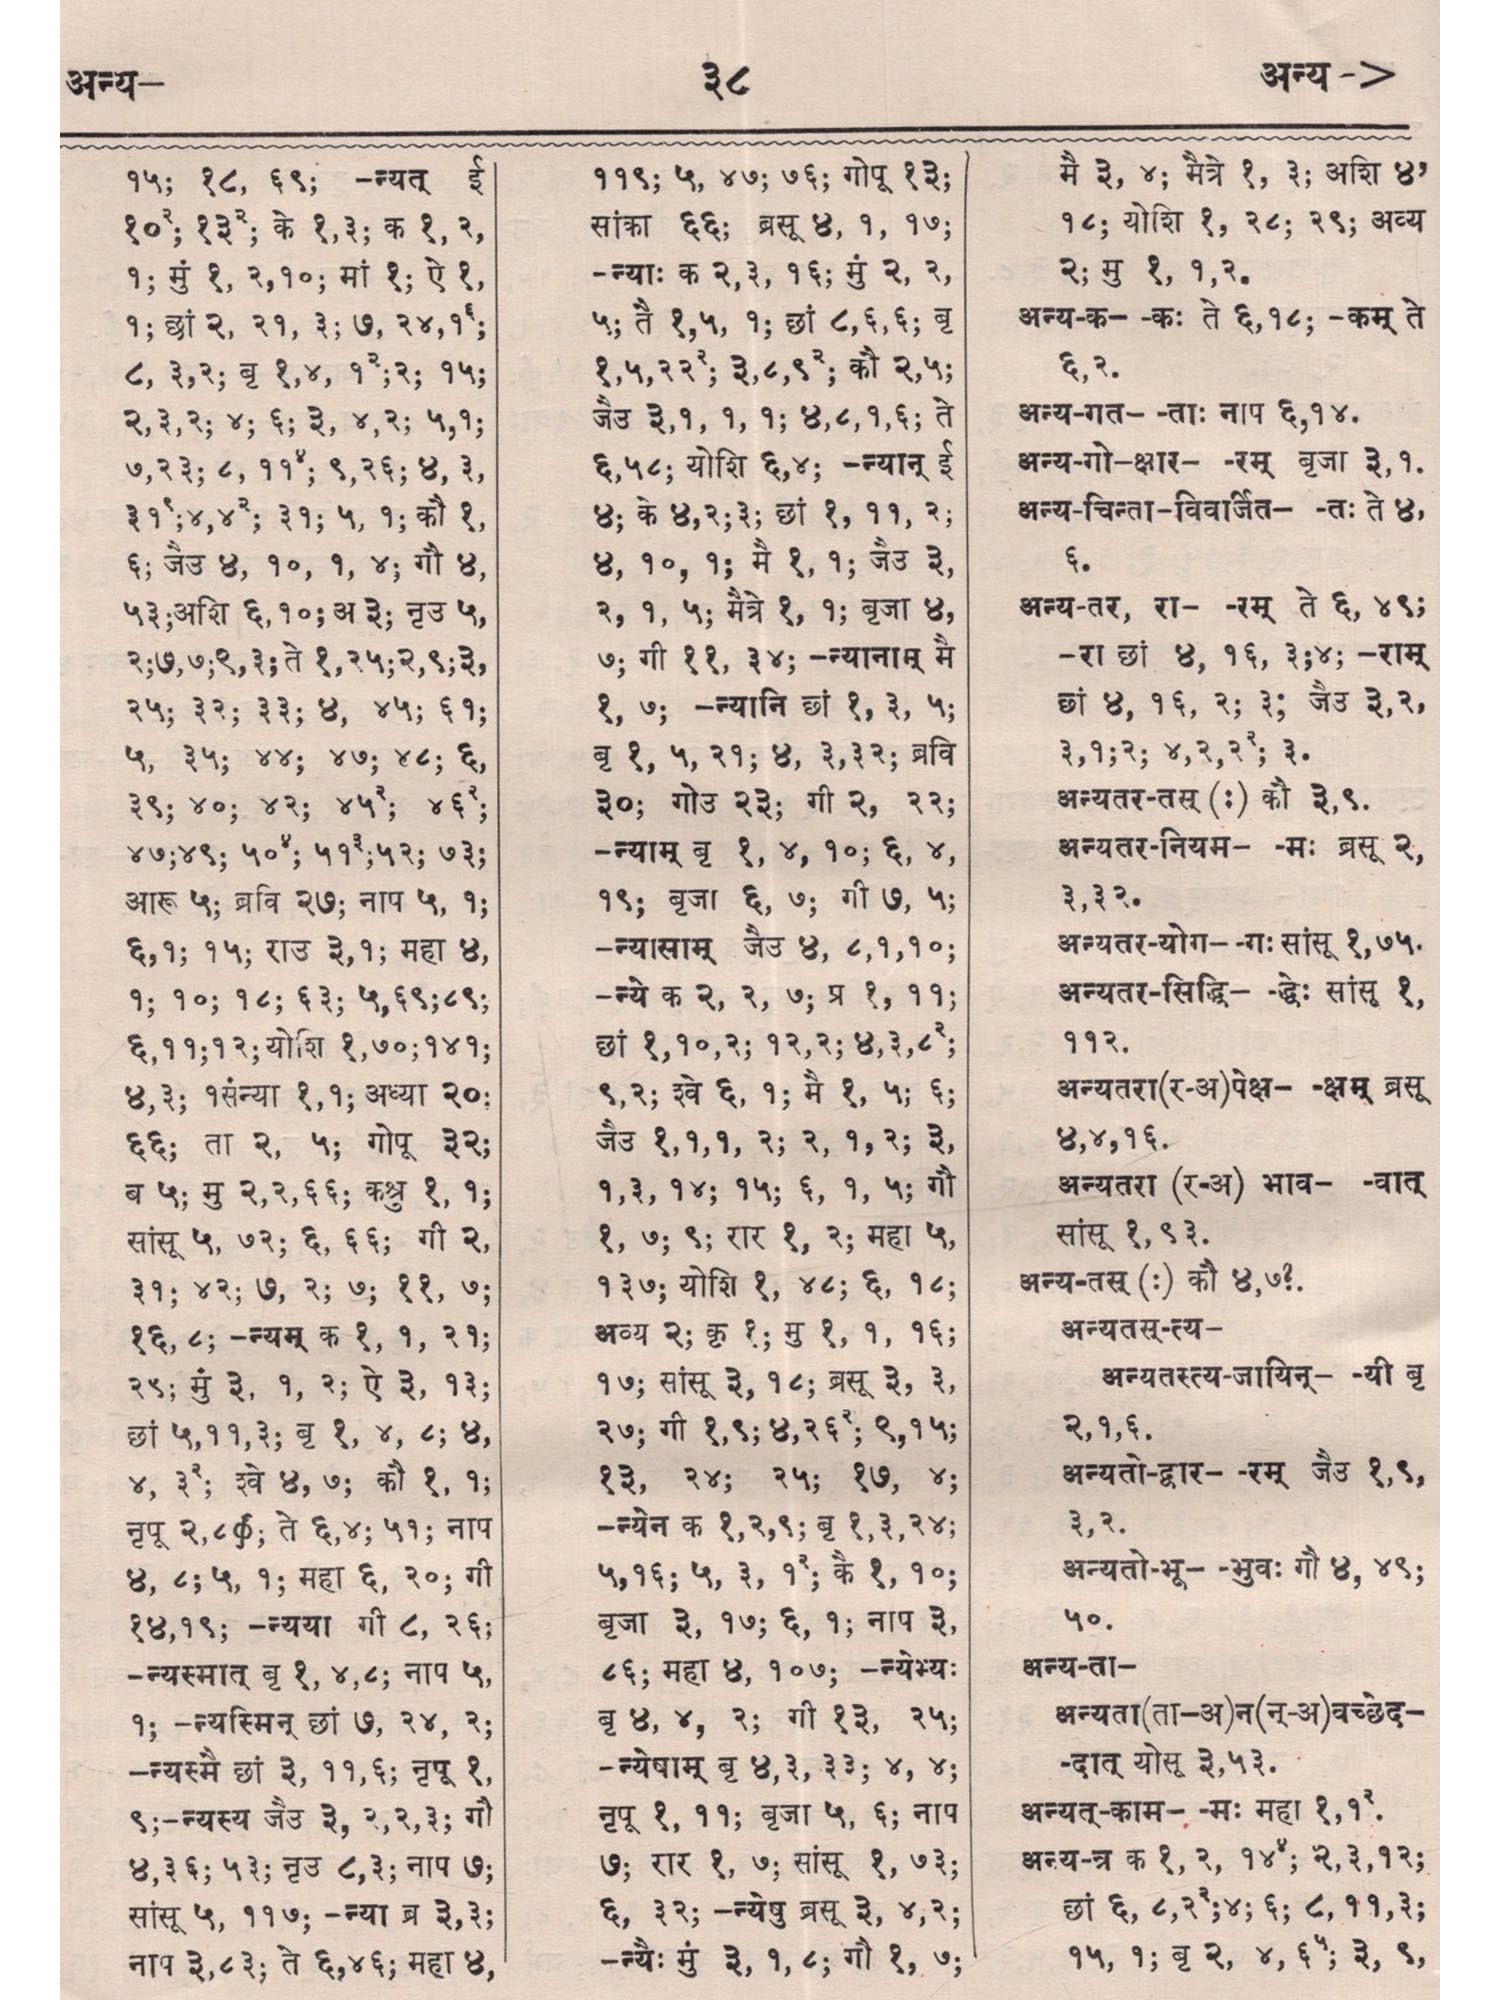 अन्य–
३८
अन्य->
१५; १८, ६९; –न्यत् ई
१०²; १३²; के १,३; क १, २,
१; मुं १, २,१०; मां १; ऐ १,
१; छां २, २१, ३; ७, २४,१⁶;
८, ३,२; बृ १,४, १²;२; १५;
२,३,२; ४; ६; ३, ४,२; ५,१;
७,२३; ८, ११⁴; ९,२६; ४, ३,
३१⁹;४,४²; ३१; ५, १; कौ १,
६; जैउ ४, १०, १, ४; गौ ४,
५३;अशि ६,१०; अ ३; नृउ ५,
२;७,७;९,३; ते १,२५;२,९;३,
२५; ३२; ३३; ४, ४५; ६१;
५, ३५; ४४; ४७; ४८; ६,
३९; ४०; ४२; ४५²; ४६²;
४७;४९; ५०⁴; ५१³;५२; ७३;
आरू ५; ब्रवि २७; नाप ५, १;
६,१; १५; राउ ३,१; महा ४,
१; १०; १८; ६३; ५,६९;८९;
६,११;१२; योशि १,७०;१४१;
४,३; १संन्या १,१; अध्या २०;
६६; ता २, ५; गोपू ३२;
ब ५; मु २,२,६६; कश्रु १, १;
सांसू ५, ७२; ६, ६६; गी २,
३१; ४२; ७, २; ७; ११, ७;
१६,८; –न्यम् क १, १, २१;
२९; मुं ३, १, २; ऐ ३, १३;
छां ५,११,३; बृ १, ४, ८; ४,
४, ३²; श्वे ४, ७; कौ १, १;
नृपू २,८ф; ते ६,४; ५१; नाप
४, ८; ५, १; महा ६, २०; गी
१४,१९; –न्यया गी ८, २६;
–न्यस्मात् बृ १, ४,८; नाप ५,
१; –न्यस्मिन् छां ७, २४, २;
–न्यस्मै छां ३, ११,६; नृपू १,
९;–न्यस्य जैउ ३, २,२,३; गौ
४,३६; ५३; नृउ ८,३; नाप ७;
सांसू ५, ११७; –न्या ब्र ३,३;
नाप ३,८३; ते ६,४६; महा ४,
११९; ५, ४७; ७६; गोपू १३;
सांका ६६; ब्रसू ४, १, १७;
–न्याः क २,३, १६; मुं २, २,
५; तै १,५, १; छां ८,६,६; बृ
१,५,२२²; ३,८,९²; कौ २,५;
जैउ ३,१, १, १; ४,८,१,६; ते
६,५८; योशि ६,४; –न्यान् ई
४; के ४,२;३; छां १, ११, २;
४, १०, १; मै १, १; जैउ ३,
२, १, ५; मैत्रे १, १; बृजा ४,
७; गी ११, ३४; –न्यानाम् मै
१, ७; –न्यानि छां १, ३, ५;
बृ १, ५, २१; ४, ३,३२; ब्रवि
३०; गोउ २३; गी २, २२;
–न्याम् बृ १, ४, १०; ६, ४,
१९; बृजा ६, ७; गी ७, ५;
–न्यासाम् जैउ ४, ८,१,१०;
–न्ये क २, २, ७; प्र १, ११;
छां १,१०,२; १२,२; ४,३,८²;
९,२; श्वे ६, १; मै १, ५; ६;
जैउ १,१,१, २; २, १, २; ३,
१,३, १४; १५; ६, १, ५; गौ
१, ७; ९; रार १, २; महा ५,
१३७; योशि १, ४८; ६, १८;
अव्य २; कृ १; मु १, १, १६;
१७; सांसू ३, १८; ब्रसू ३, ३,
२७; गी १,९; ४,२६²; ९,१५;
१३, २४; २५; १७, ४;
–न्येन क १,२,९; बृ १,३,२४;
५,१६; ५, ३, १²; कै १, १०;
बृजा ३, १७; ६, १; नाप ३,
८६; महा ४, १०७; –न्येभ्यः
बृ ४, ४, २; गी १३, २५;
–न्येषाम् बृ ४,३, ३३; ४, ४;
नृपू १, ११; बृजा ५, ६; नाप
७; रार १, ७; सांसू १, ७३;
६, ३२; –न्येषु ब्रसू ३, ४,२;
–न्यैः मुं ३, १,८; गौ १, ७;
मै ३, ४; मैत्रे १, ३; अशि ४,
१८; योशि १, २८; २९; अव्य
२; मु १, १,२.
अन्य-क– -कः ते ६,१८; –कम् ते
६,२.
अन्य-गत– -ताः नाप ६,१४.
अन्य-गो–क्षार– -रम् बृजा ३,१.
अन्य-चिन्ता–विवर्जित– -तः ते ४,
६.
अन्य-तर, रा– -रम् ते ६, ४९;
–रा छां ४, १६, ३;४; –राम्
छां ४, १६, २; ३; जैउ ३,२,
३,१;२; ४,२,२²; ३.
अन्यतर-तस् (ः) कौ ३,९.
अन्यतर-नियम– -मः ब्रसू २,
३,३२.
अन्यतर-योग– -गः सांसू १,७५.
अन्यतर-सिद्धि– -द्धेः सांसू १,
११२.
अन्यतरा(र-अ)पेक्ष– -क्षम् ब्रसू
४,४,१६.
अन्यतरा (र-अ) भाव– -वात्
सांसू १,९३.
अन्य-तस् (ः) कौ ४,७?.
अन्यतस्-त्य–
अन्यतस्त्य-जायिन्– -यी बृ
२,१,६.
अन्यतो-द्वार– -रम् जैउ १,९,
३,२.
अन्यतो-भू– -भुवः गौ ४, ४९;
५०.
अन्य-ता–
अन्यता(ता–अ)न(न्-अ)वच्छेद–
-दात् योसू ३,५३.
अन्यत्-काम– -मः महा १,१².
अन्य-त्र क १, २, १४⁴; २,३,१२;
छां ६, ८,२²;४; ६; ८, ११,३;
१५, १; बृ २, ४, ६⁵; ३, ९,